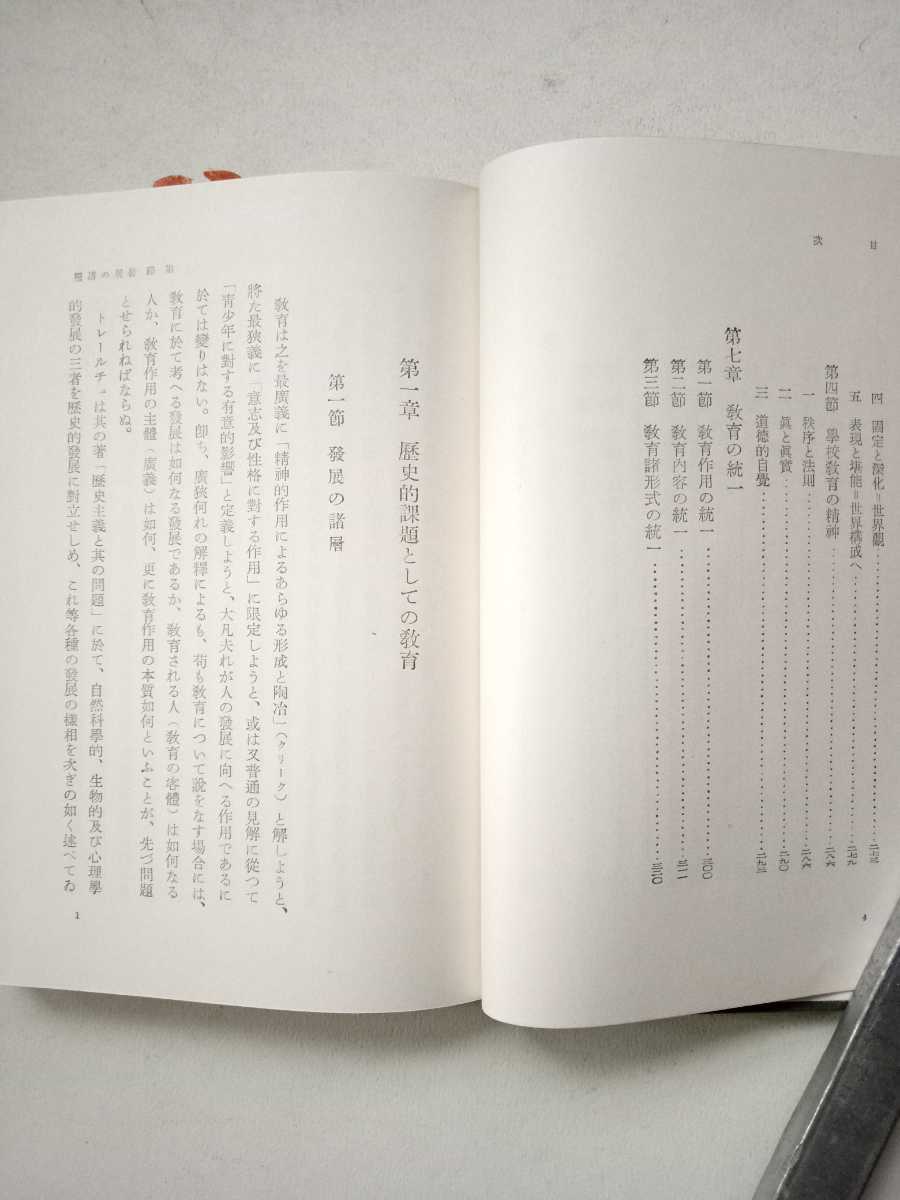 目次
四 固定と深化=世界觀……二七三
五 表現と堪能=世界構成へ……二七九
第四節 學校敎育の精神……二八六
一 秩序と法則……二八六
二 眞と眞實……二九〇
三 道德的自覺……二九三
第七章 敎育の統一
第一節 敎育作用の統一……三〇〇
第二節 敎育內容の統一……三一一
第三節 敎育諸形式の統一……三二〇
4
第一章 歷史的課題としての敎育
第一節 發展の諸層
敎育は之を最廣義に「精神的作用によるあらゆる形成と陶冶」(クリーク)と解しようと、
將た最狹義に「意志及び性格に對する作用」に限定しようと、或は又普通の見解に從つて
「靑少年に對する有意的影響」と定義しようと、大凡夫れが人の發展に向へる作用であるに
於ては變りはない。卽ち、廣狹何れの解釋によるも、苟も敎育について說をなす場合には、
敎育に於て考へる發展は如何なる發展であるか、敎育される人(敎育の客體)は如何なる
人か、敎育作用の主體(廣義)は如何、更に敎育作用の本質如何といふことが、先づ問題
とせられねばならぬ。
トレールチュは其の著「歷史主義と其の問題」に於て、自然科學的、生物的及び心理學
的發展の三者を歷史的發展に對立せしめ、これ等各種の發展の樣相を次ぎの如く述べてゐ
第一節 發展の諸層
1